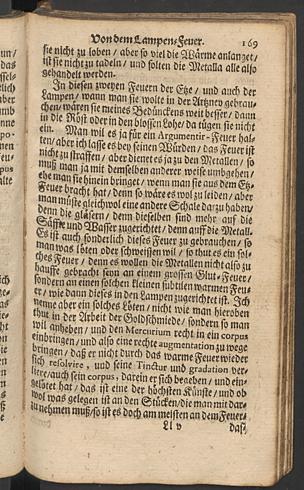 Von dem Lampen-Feuer. 169
sie nicht zu loben / aber so viel die Wärme anlanget /
ist sie nicht zu tadeln / und solten die Metalla alle also
gehandelt werden.
In diesen zweyen Feuern der Etze / und auch der
Lampen / wann man sie wolte in der Artzney gebrau-
chen / wären sie meines Bedünckens weit besser / dann
in die Rost oder in den blossen Lohe / da tügen sie nicht
ein. Man wil es ja für ein Argument-Feuer hal-
ten / aber ich lasse es bey seinen Würden / das Feuer ist
nicht zu straffen / aber dienet es ja zu den Metallen / so
muß man ja mit demselben anderer weise umbgehen /
ehe man sie hinein bringet / wenn man sie aus dem Etz-
Feuer bracht hat / denn so wäre es wol zu leiden / aber
man müste gleichwol eine andere Schale darzu haben /
denn die gläsern / denn dieselben sind mehr auf die
und Wasser zugerichtet / denn auff die Metall.
Es ist auch sonderlich dieses Feuer zu gebrauchen / so
man was löten oder schweissen wil / so thut es ein sol-
ches Feuer / denn es wollen die Metallen nicht also zu
hauffe gebracht seyn an einem grossen Glut-Feuer /
sondern an einen solchen kleinen subtilen warmen Feu-
er / wie dann dieses in den Lampen zugerichtet ist. Ich
nenne aber ein solches Löten / nicht wie man hieroben
thut in der Arbeit der Goldschmiede / sondern so man
wil anheben / und den Mercurium recht in ein corpus
einbringen / und also eine rechte augmentation zu wege
bringen / daß er nicht durch das warme Feuer wieder
sich resolvire, und seine Tinctur und gradation ver-
liere / auch sein corpus, darein er sich begeben / und ein-
gelötet hat / das ist eine der höchsten Künste / und ob
wol was gelegen ist an den Stücken / die man mit dar-
zu nehmen muß / so ist es doch am meisten an dem Feuer-
Ll v das,